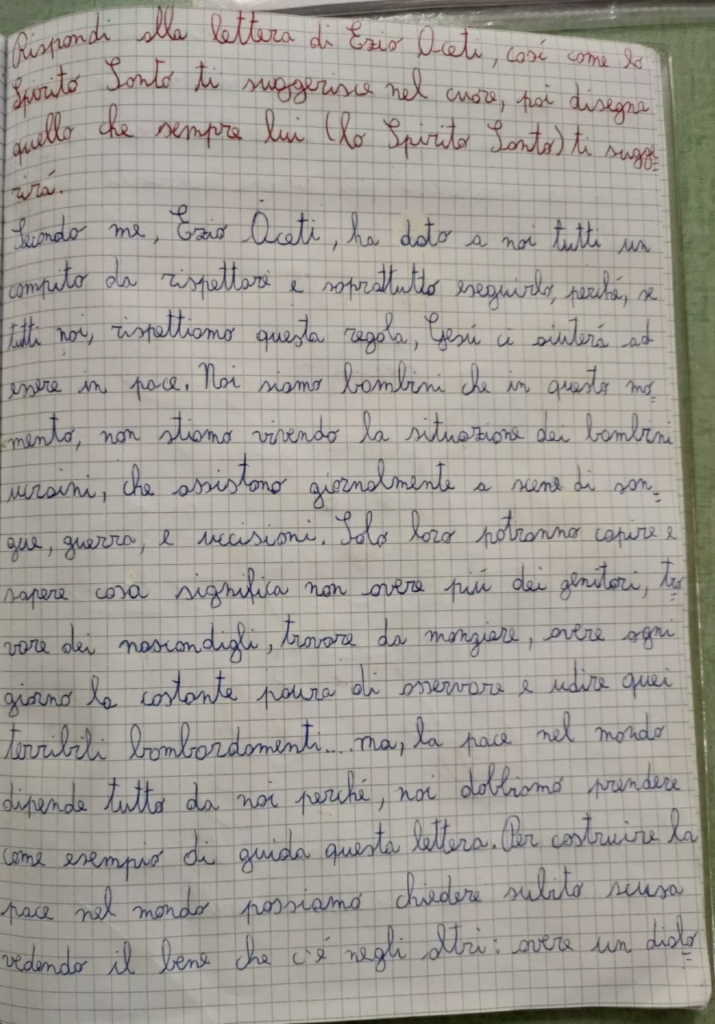 Rispondi alla lettera di Ezio Aceti, così come lo
Spirito Santo ti suggerisce nel cuore, poi disegna
quello che sempre lui (lo Spirito Santo) ti sugge=
rirá.
Secondo me, Ezio Aceti, ha dato a noi tutti un
compito da rispettare e soprattutto eseguirlo, perché, se
tutti noi, rispettiamo questa regola, Gesú ci aiuterá ad
essere in pace. Noi siamo bambini che in questo mo=
mento, non stiamo vivendo la situazione dei bambini
ucraini, che assistono giornalmente a scene di san=
gue, guerra, e uccisioni. Solo loro potranno capire e
sapere cosa significa non avere piú dei genitori, tro=
vare dei nascondigli, trovare da mangiare, avere ogni
giorno la costante paura di osservare e udire quei
terribili bombardamenti... ma, la pace nel mondo
dipende tutto da noi perché, noi dobbiamo prendere
come esempio di guida questa lettera. Per costruire la
pace nel mondo possiamo chiedere subito scusa
vedendo il bene che c'é negli altri: avere un dialo=